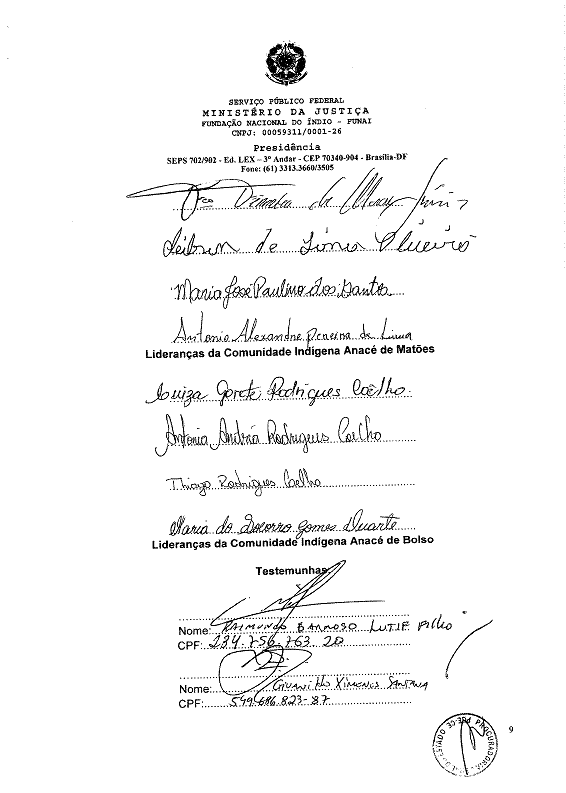 SERVIÇO PÚBLICO FEDERAL
MINISTÉRIO DA JUSTIÇA
FUNDAÇÃO NACIONAL DO ÍNDIO - FUNAI
CNPJ: 00059311/0001-26
Presidência
SEPS 702/902 - Ed. LEX – 3º Andar - CEP 70340-904 - Brasília-DF
Fone: (61) 3313.3660/3505
de
Maria José Paulino dos Santos
Antonio Alexandre Pereira de Lima
Lideranças da Comunidade Indígena Anacé de Matões
Luiza Gorete Rodrigues Coêlho
Antonia Andréa Rodrigues Coelho
Thiago Rodrigues Coelho
Maria do Socorro Gomes Duarte
Lideranças da Comunidade Indígena Anacé de Bolso
Testemunhas
Nome: RAIMUNDO BARROSO LUTIF Filho
CPF: 234.756.763.20
Nome: XIMENES SANTANA
CPF: 549.686.823-87
ESTADO PROCURADORIA
9